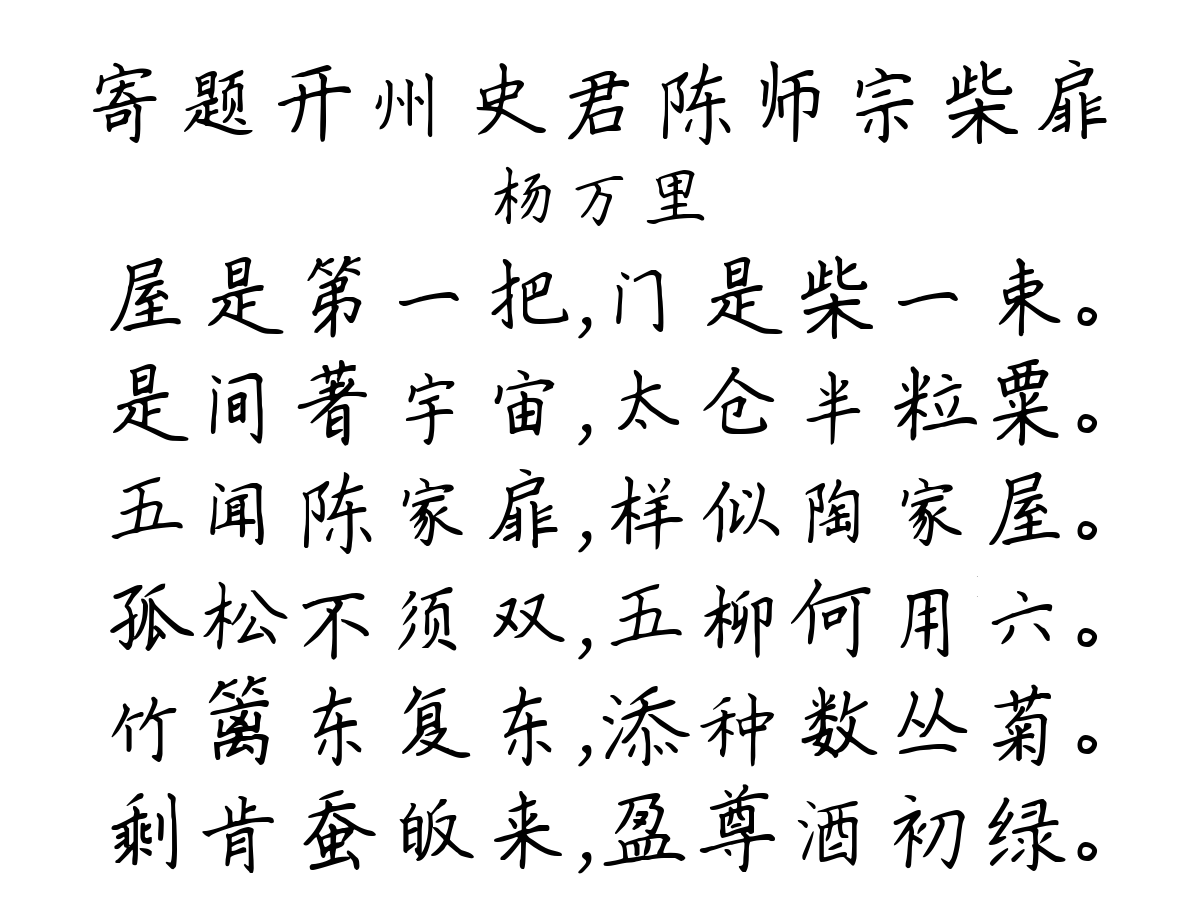 寄题开州史君陈师宗柴扉
杨万里
屋是第一把,门是柴一束。
是间著宇宙,太仓半粒粟。
五闻陈家扉,样似陶家屋。
孤松不须双,五柳何用六。
竹篱东复东,添种数丛菊。
剩肯蚕皈来,盈尊酒初绿。